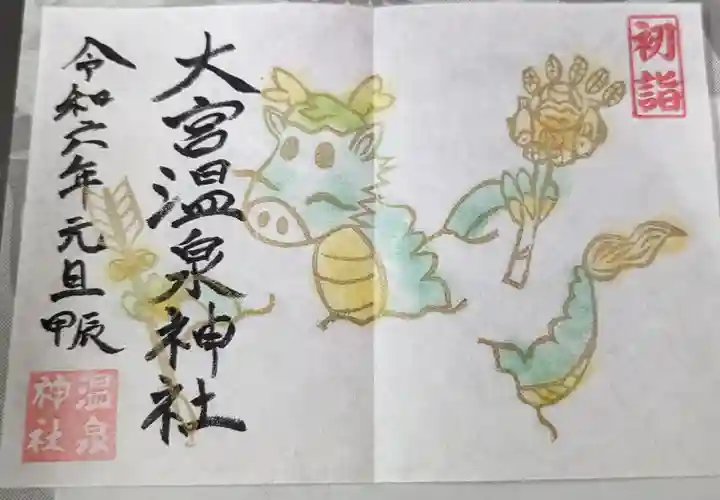 初詣
大宮温泉神社
令和六年 元旦
甲辰
温泉
神社